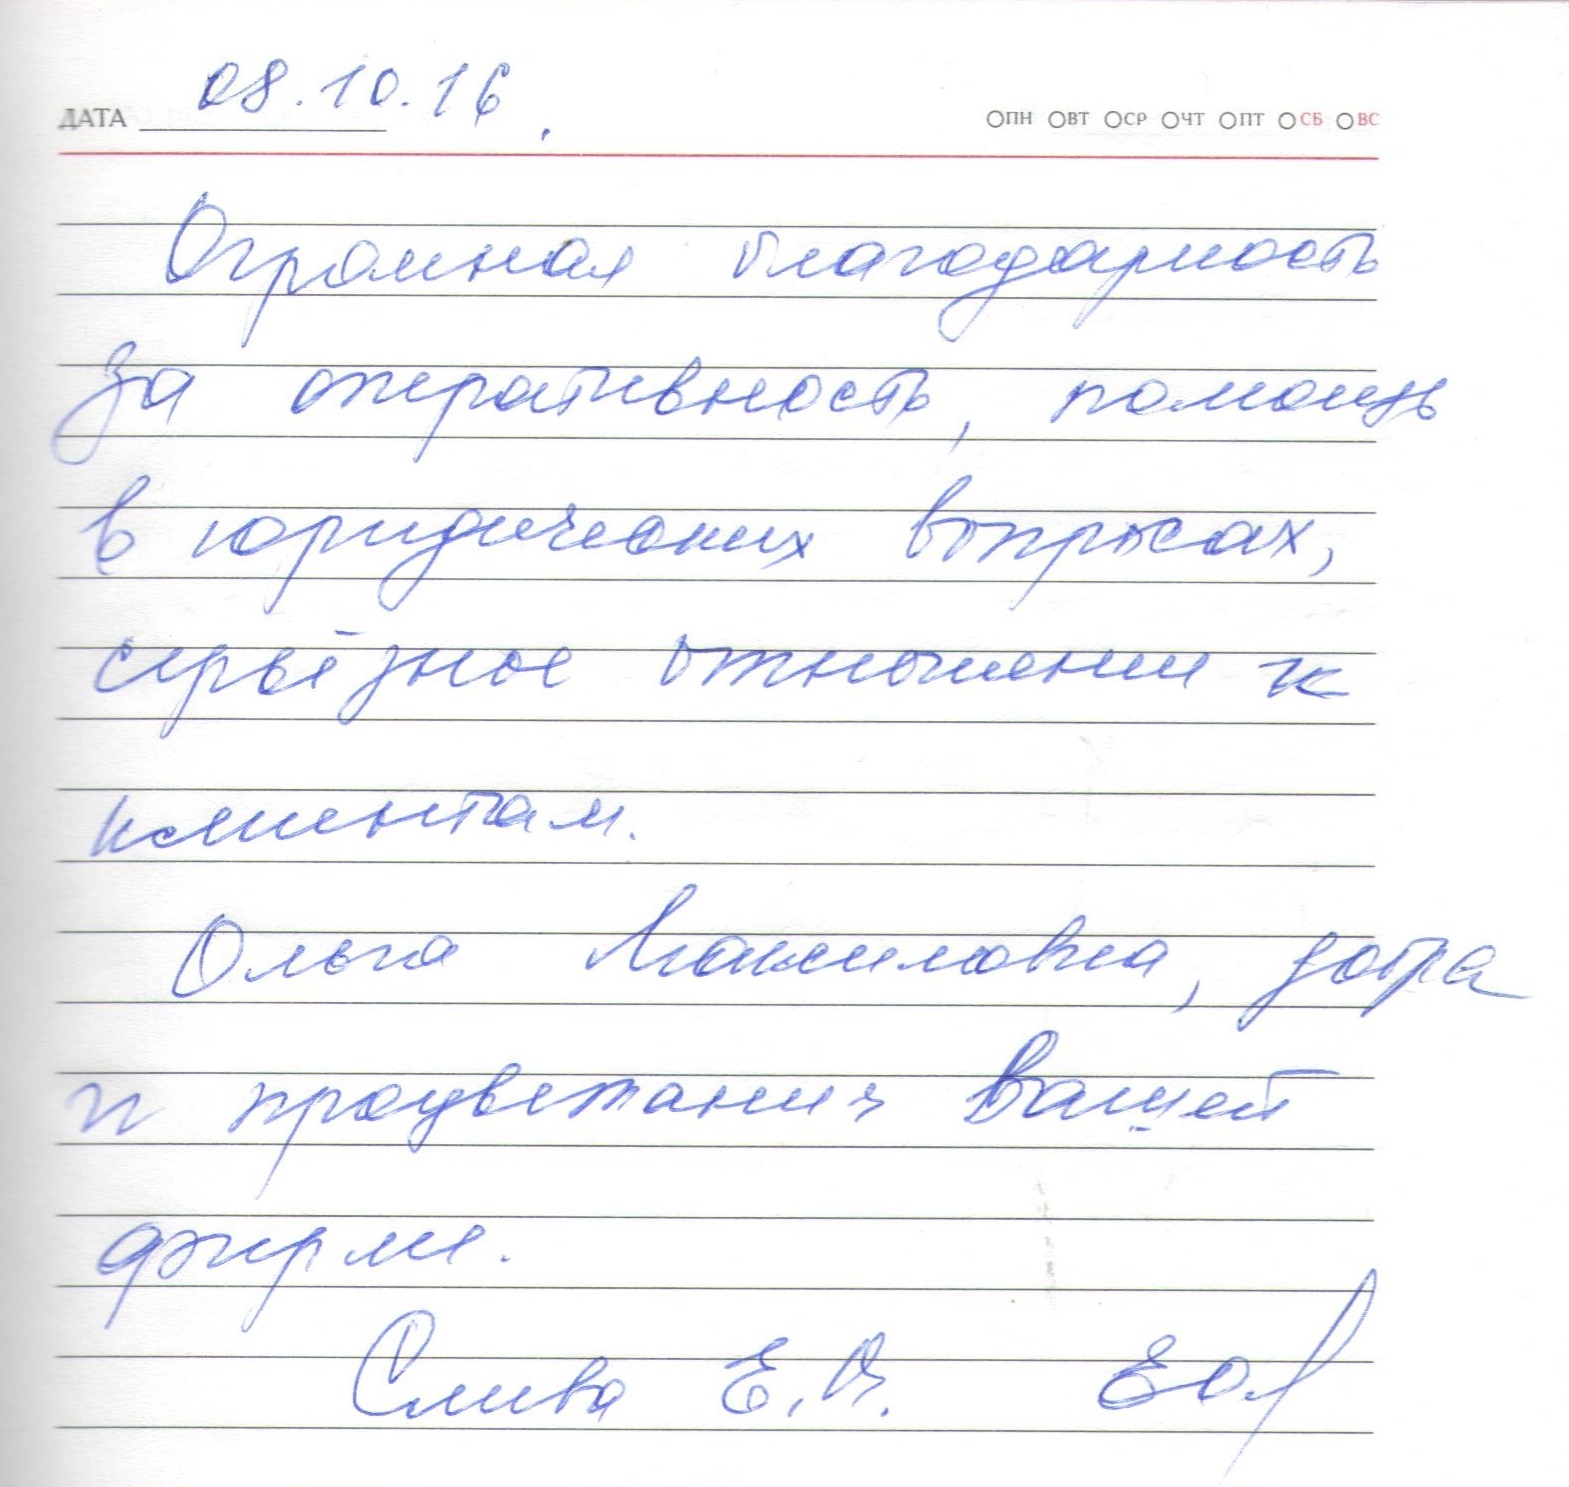 ДАТА 08.10.16.
ПН ВТ СР ЧТ ПТ СБ ВС
Огромная благодарность
за оперативность, помощь
в юридических вопросах,
серьёзное отношение к
клиентам.
Ольга Максимовна, добра
и процветания Вашей
фирме.
Слива Е.В.